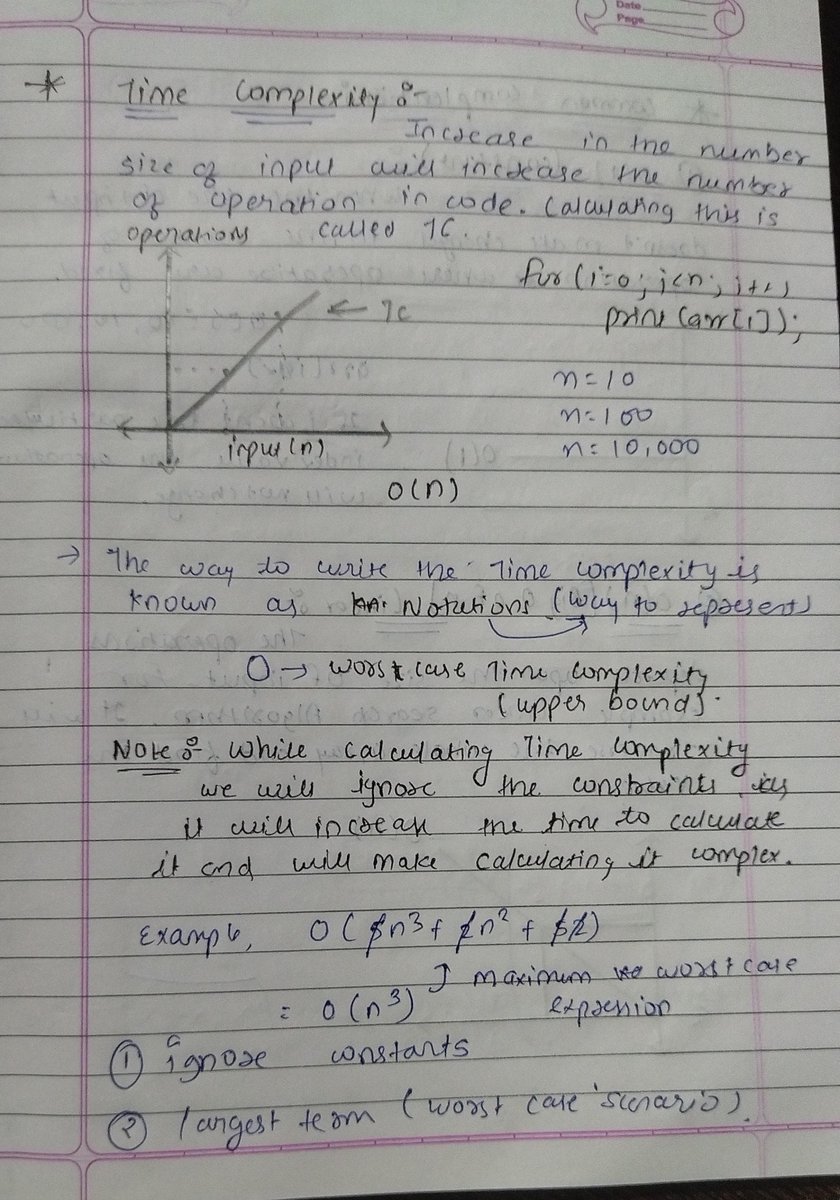 Date
Page
* Time Complexity :-
Increase in the number
size of input will increase the number
of operation in code. Calculating this is
called TC.
operations
← TC
input(n)
for(i=0; i<n; i++)
print(arr[i]);
n=10
n=100
n=10,000
O(n)
→ The way to write the Time complexity is
known as Notations (way to represent)
O → worst case Time complexity
(upper bound).
Note :- While calculating Time complexity
we will ignore the constraints as
it will increase the time to calculate
it and will make calculating it complex.
Example, O(n³ + n² + )
maximum worst case
= O(n³) expression
① ignore constants
② largest term (worst case scenario).